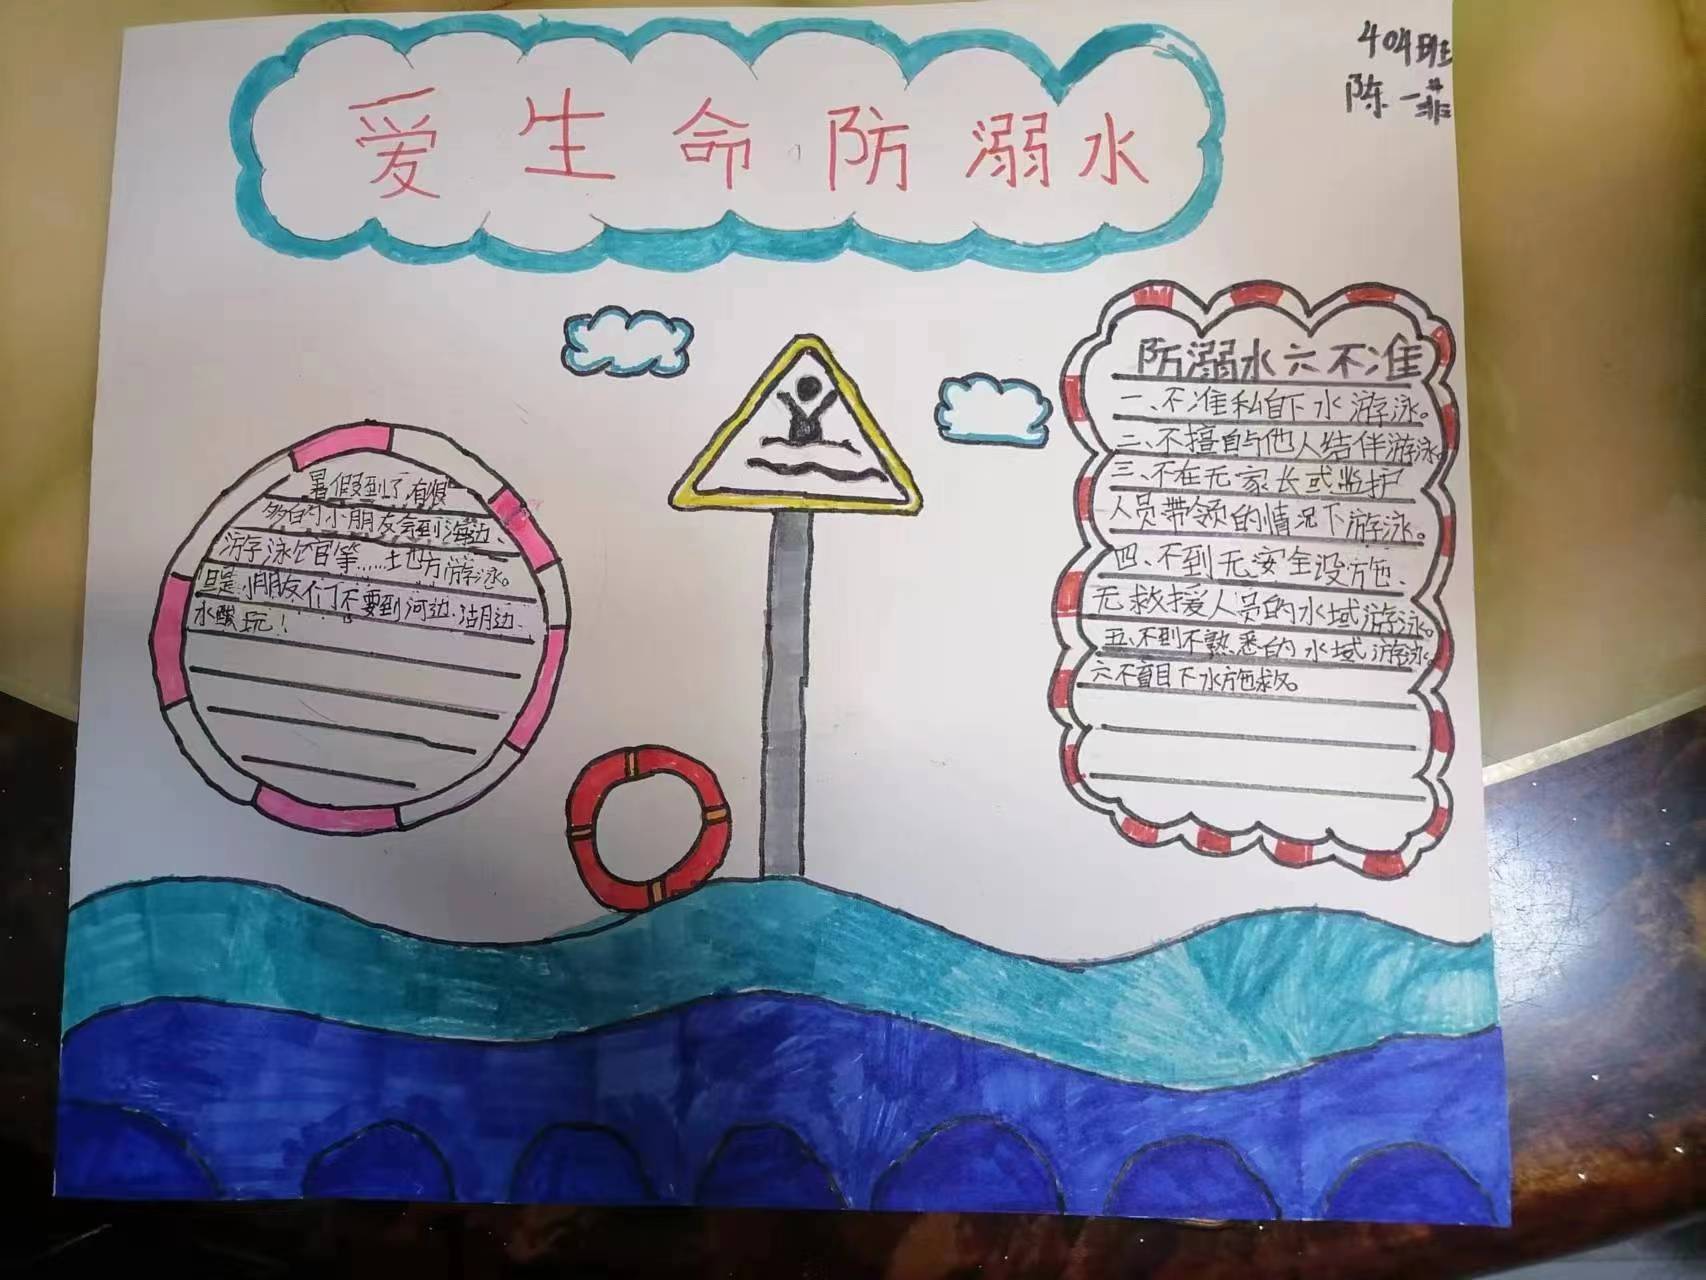 404班
陈一菲
爱生命防溺水
暑假到了,有很
多的小朋友会到海边、
游泳馆等……土地方游泳。
但是小朋友们不要到河边、湖边、
水酸玩!
防溺水六不准
一、不准私自下水游泳。
二、不擅自与他人结伴游泳。
三、不在无家长或监护
人员带领的情况下游泳。
四、不到无安全设施、
无救援人员的水域游泳。
五、不到不熟悉的水域游泳。
六不盲目下水施救。